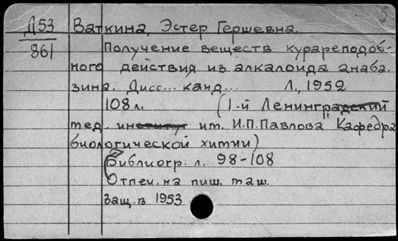 Д53 Ваткина, Эстер Гершевна.
861 Получение веществ курареподоб-
ного действия из алкалоида анаба-
зина. Дисс... канд... Л., 1952
108 л. (1-й Ленинградский
мед. институт им. И.П. Павлова. Кафедра
биологической химии)
Библиогр. л. 98-108
Отпеч. на пиш. маш.
Защ. в 1953